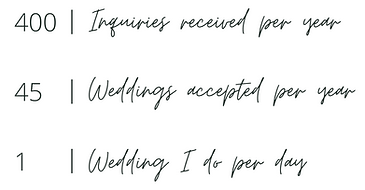 400 | Inquiries received per year
45 | Weddings accepted per year
1 | Wedding I do per day